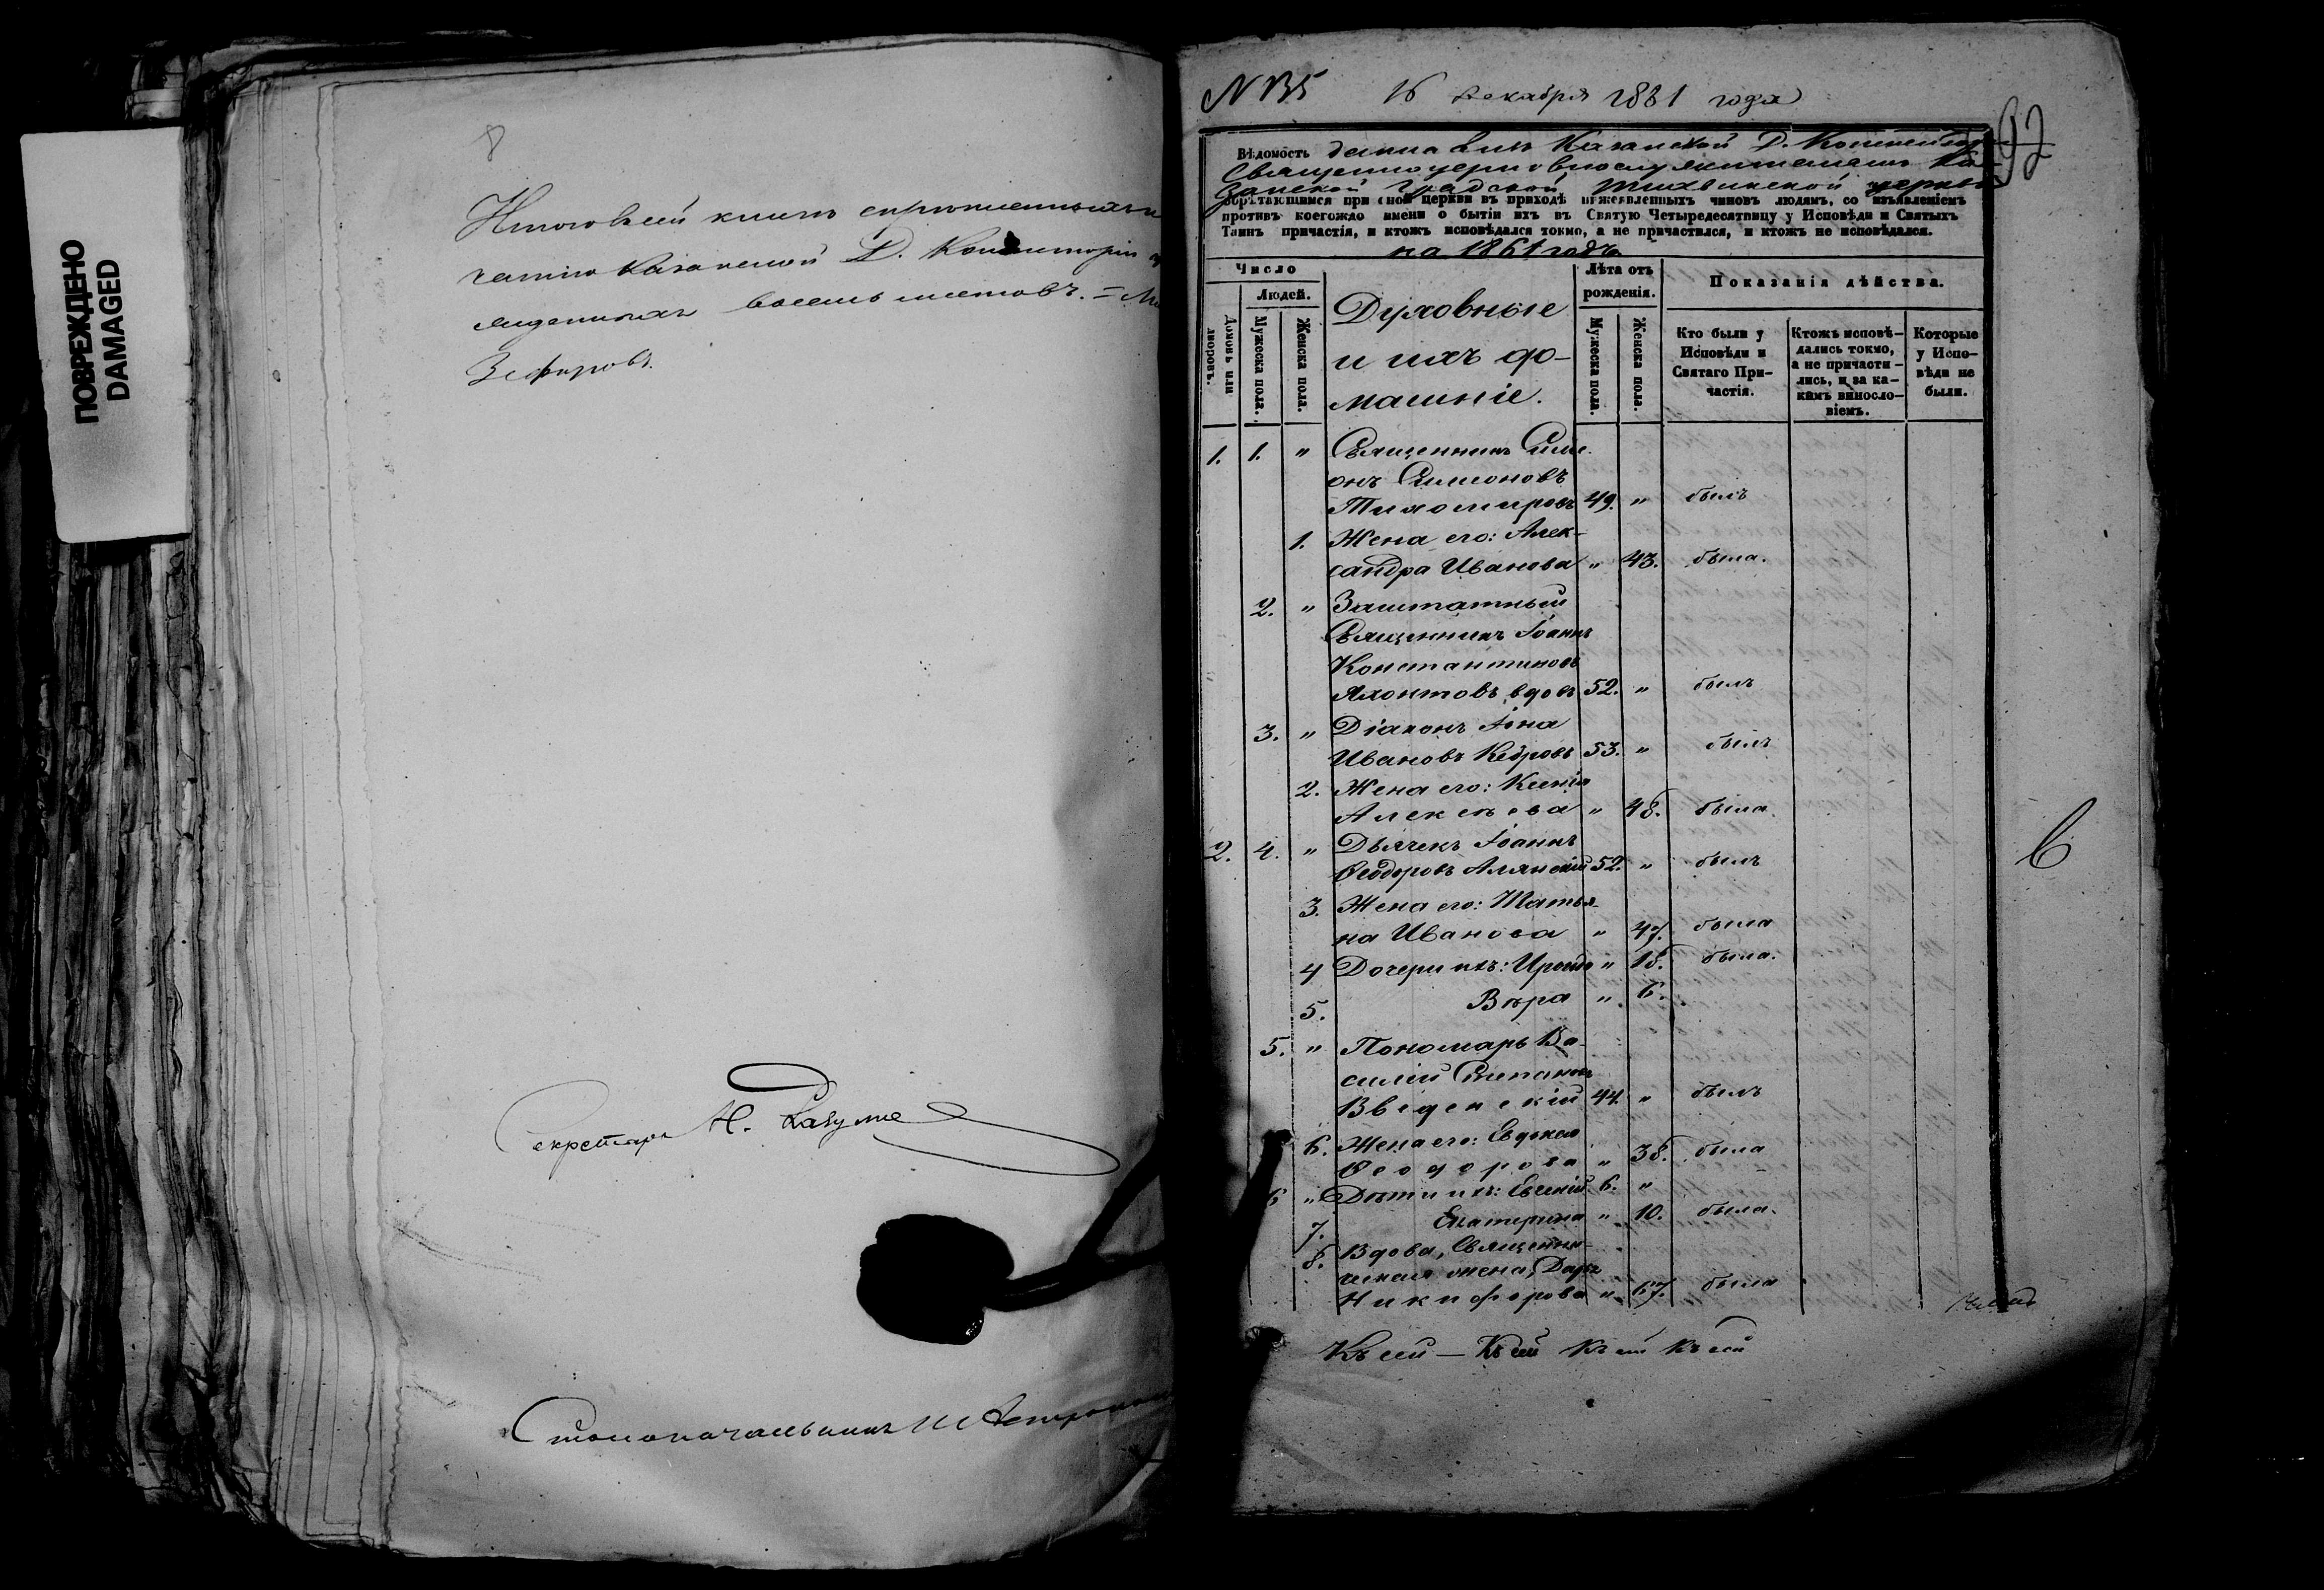 ПОВРЕЖДЕНО
DAMAGED
8
Итого в сей книге скрепленныхъ и
чатію Казанской Д. Консисторіи
восемь листовъ. –
Зефировъ.
Секретарь Н.
Столоначальникъ
N 135 16 Декабря 1861 года
92
Вѣдомость данная изъ Казанской Д. Консисторіи
Священноцерковнослужителямъ Ка-
занской Градской Тихвинской церкви
обрѣтающимся при оной церкви въ приходѣ нижеявленныхъ чиновъ людямъ, со изъявленіемъ
противъ коегождо имени о бытіи ихъ въ Святую Четыредесятницу у Исповѣди и Святыхъ
Таинъ причастія, и ктожъ исповѣдался токмо, а не причастился, и ктожъ не исповѣдался.
на 1861 годъ
Число
Людей.
Домовъ или дворовъ.
Мужеска пола.
Женска пола.
Духовные
и ихъ до-
машніе.
Лѣта отъ
рожденія.
Мужеска пола.
Женска пола.
Показанія дѣйства.
Кто были у
Исповѣди и
Святаго При-
частія.
Ктожъ исповѣ-
дались токмо,
а не причасти-
лись, и за ка-
кимъ виносло-
віемъ.
Которые
у Испо-
вѣди не
были.
1. 1. " Священникъ Симе-
онъ Симеоновъ
Тихомировъ 49. " былъ
1. Жена его: Алек-
сандра Иванова " 43. была.
2. " Заштатный
Священникъ Іоаннъ
Константиновъ
Яхонтовъ, вдовъ 52. " былъ
3. " Діаконъ Іона
Ивановъ Кедровъ 53. " былъ
2. Жена его: Ксенія
Алексѣева " 48. была.
2. 4. " Дьячекъ Іоаннъ
Ѳеодоровъ Алянскій 52. " былъ
3. Жена его: Татья-
на Иванова " 47. была
4 Дочери ихъ: " 18. была.
5. Вѣра " 6.
5. " Пономарь Ва-
силій Степановъ
Введенскій 44. " былъ
6. Жена его: Евдокія
Ѳеодорова " 38. была
6 " Дѣти ихъ: Евгеній 6. "
7. Екатерина " 10. была.
8. Вдова, Священни-
ческая жена, Дарья
Никифорова " 67. была
Къ сей – Къ сей Къ сей Къ сей